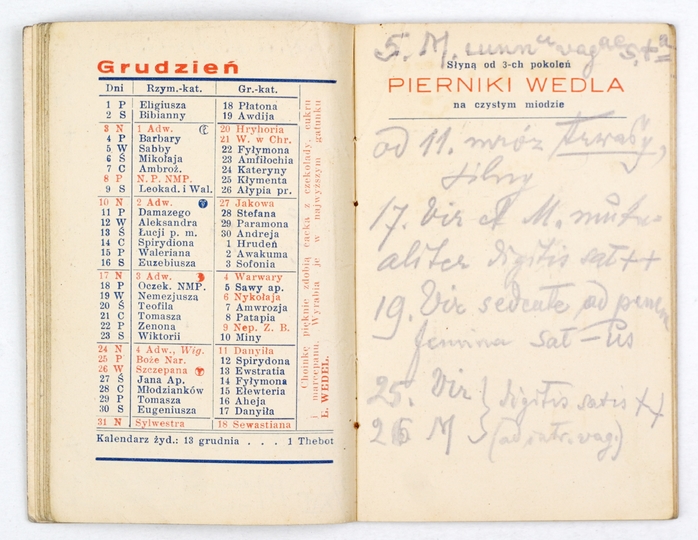 Grudzień
Dni Rzym.-kat. Gr.-kat.
1 P Eligiusza 18 Płatona
2 S Bibianny 19 Awdija
3 N 1 Adw. 20 Hryhoria
4 P Barbary 21 W. w Chr.
5 W Sabby 22 Fyłymona
6 Ś Mikołaja 23 Amfiłochia
7 C Ambroż. 24 Kateryny
8 P N. P. NMP. 25 Kłymenta
9 S Leokad. i Wal. 26 Ałypia pr.
10 N 2 Adw. 27 Jakowa
11 P Damazego 28 Stefana
12 W Aleksandra 29 Paramona
13 Ś Łucji p. m. 30 Andreja
14 C Spirydiona 1 Hrudeń
15 P Waleriana 2 Awakuma
16 S Euzebiusza 3 Sofonia
17 N 3 Adw. 4 Warwary
18 P Oczek. NMP. 5 Sawy ap.
19 W Nemezjusza 6 Nykołaja
20 Ś Teofila 7 Amwrozja
21 C Tomasza 8 Patapia
22 P Zenona 9 Nep. Z. B.
23 S Wiktorii 10 Miny
24 N 4 Adw., Wig. 11 Danyiła
25 P Boże Nar. 12 Spirydona
26 W Szczepana 13 Ewstratia
27 Ś Jana Ap. 14 Fyłymona
28 C Młodzianków 15 Elewteria
29 P Tomasza 16 Aheja
30 S Eugeniusza 17 Danyiła
31 N Sylwestra 18 Sewastiana
Kalendarz żyd.: 13 grudnia . . . 1 Thebot
Choinkę pięknie zdobią cacka z czekolady, cukru
i marcepanu. Wyrabia je w najwyższym gatunku
E. WEDEL.
5. M.
Słyną od 3-ch pokoleń
PIERNIKI WEDLA
na czystym miodzie
od 11. mróz trwały,
silny
17. Vir et M. mutu-
aliter digitis sat ++
19. Vir sedente ad
femina sat
25. Vir digitis satis ++
26 M (ad intr. vag.)